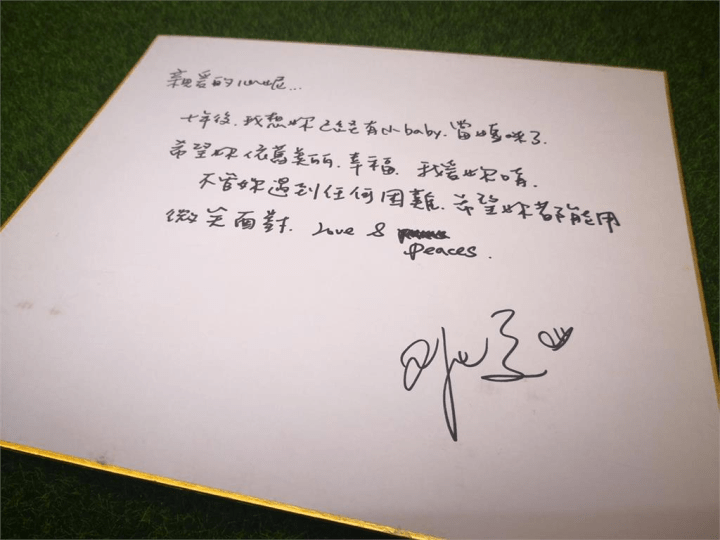 親愛的心妮...
十年後.我想妳已經有小baby.當媽咪了.
希望妳依舊美麗.幸福.我愛妳唷.
不管妳遇到任何困難.希望妳都能用
微笑面對. Love &
Peaces.